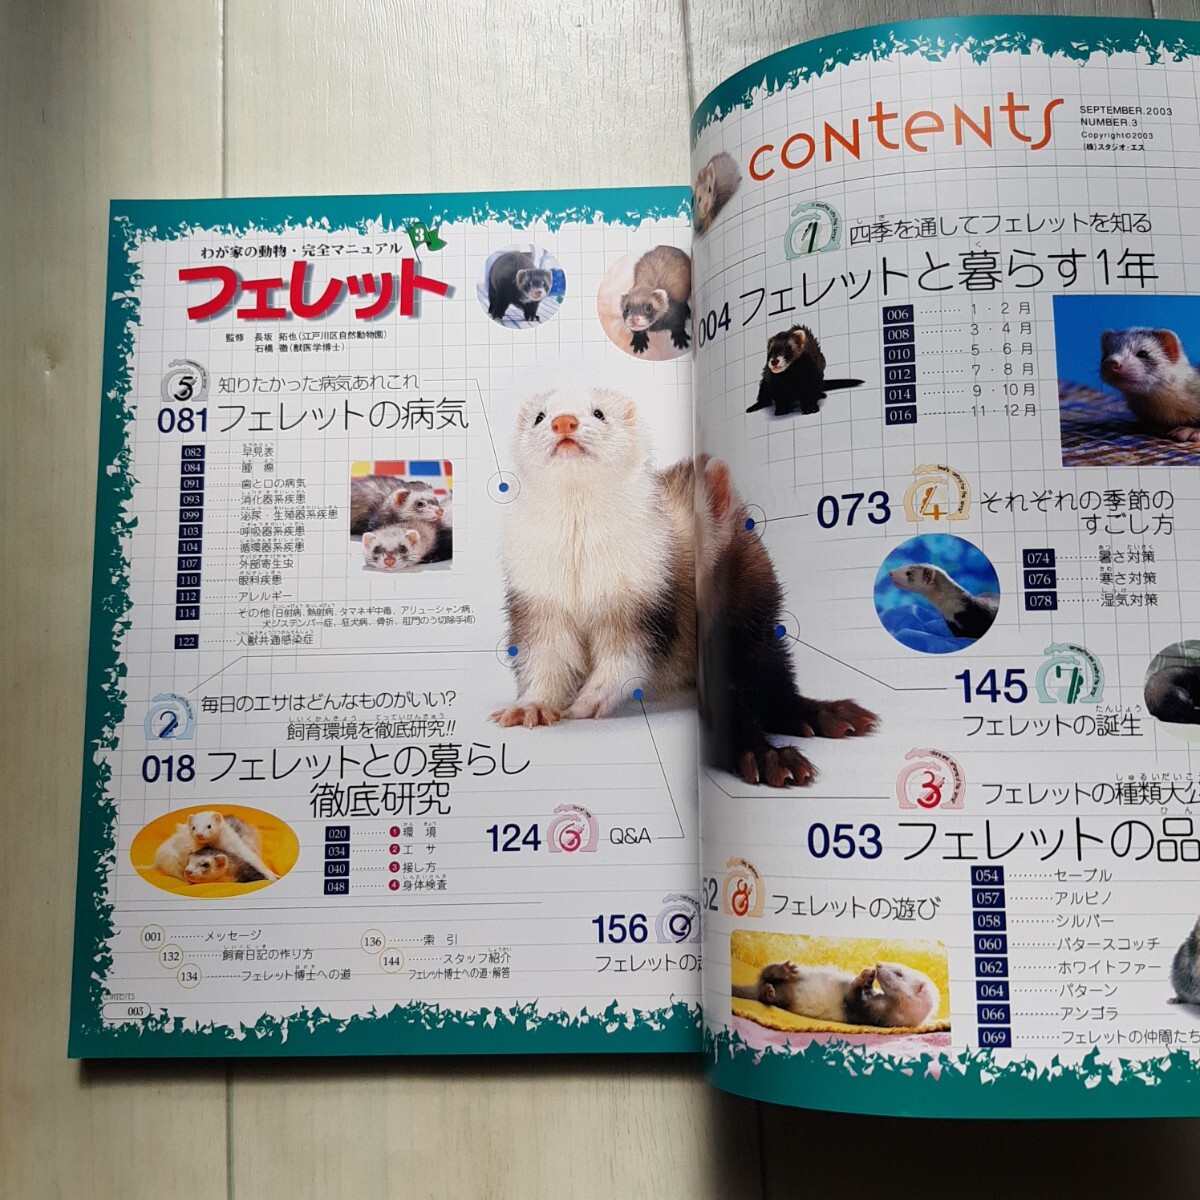 わが家の動物・完全マニュアル
3
フェレット
監修 長坂 拓也(江戸川区自然動物園)
石橋 徹(獣医学博士)
5 知りたかった病気あれこれ
081 フェレットの病気
082 早見表
084 腫瘍
091 歯と口の病気
093 消化器系疾患
099 泌尿・生殖器系疾患
103 呼吸器系疾患
104 循環器系疾患
107 外部寄生虫
110 眼科疾患
112 アレルギー
114 その他(日射病、熱射病、タマネギ中毒、アリューシャン病、
犬ジステンパー症、狂犬病、骨折、肛門のう切除手術)
122 人獣共通感染症
2 毎日のエサはどんなものがいい?
飼育環境を徹底研究!!
018 フェレットとの暮らし
徹底研究
020 1 環境
034 2 エサ
040 3 接し方
048 4 身体検査
124 6 Q&A
156 9
フェレットの
001 メッセージ
132 飼育日記の作り方
134 フェレット博士への道
136 索引
144 スタッフ紹介
フェレット博士への道・解答
003
CONTENTS
SEPTEMBER.2003
NUMBER.3
Copyright©2003
(株)スタジオ・エス
1 四季を通してフェレットを知る
004 フェレットと暮らす1年
006 1・2月
008 3・4月
010 5・6月
012 7・8月
014 9・10月
016 11・12月
073 4 それぞれの季節の
すごし方
074 暑さ対策
076 寒さ対策
078 湿気対策
145 7
フェレットの誕生
3 フェレットの種類大公
053 フェレットの品
054 セーブル
057 アルビノ
058 シルバー
060 バタースコッチ
062 ホワイトファー
064 パターン
066 アンゴラ
069 フェレットの仲間たち
52 8 フェレットの遊び